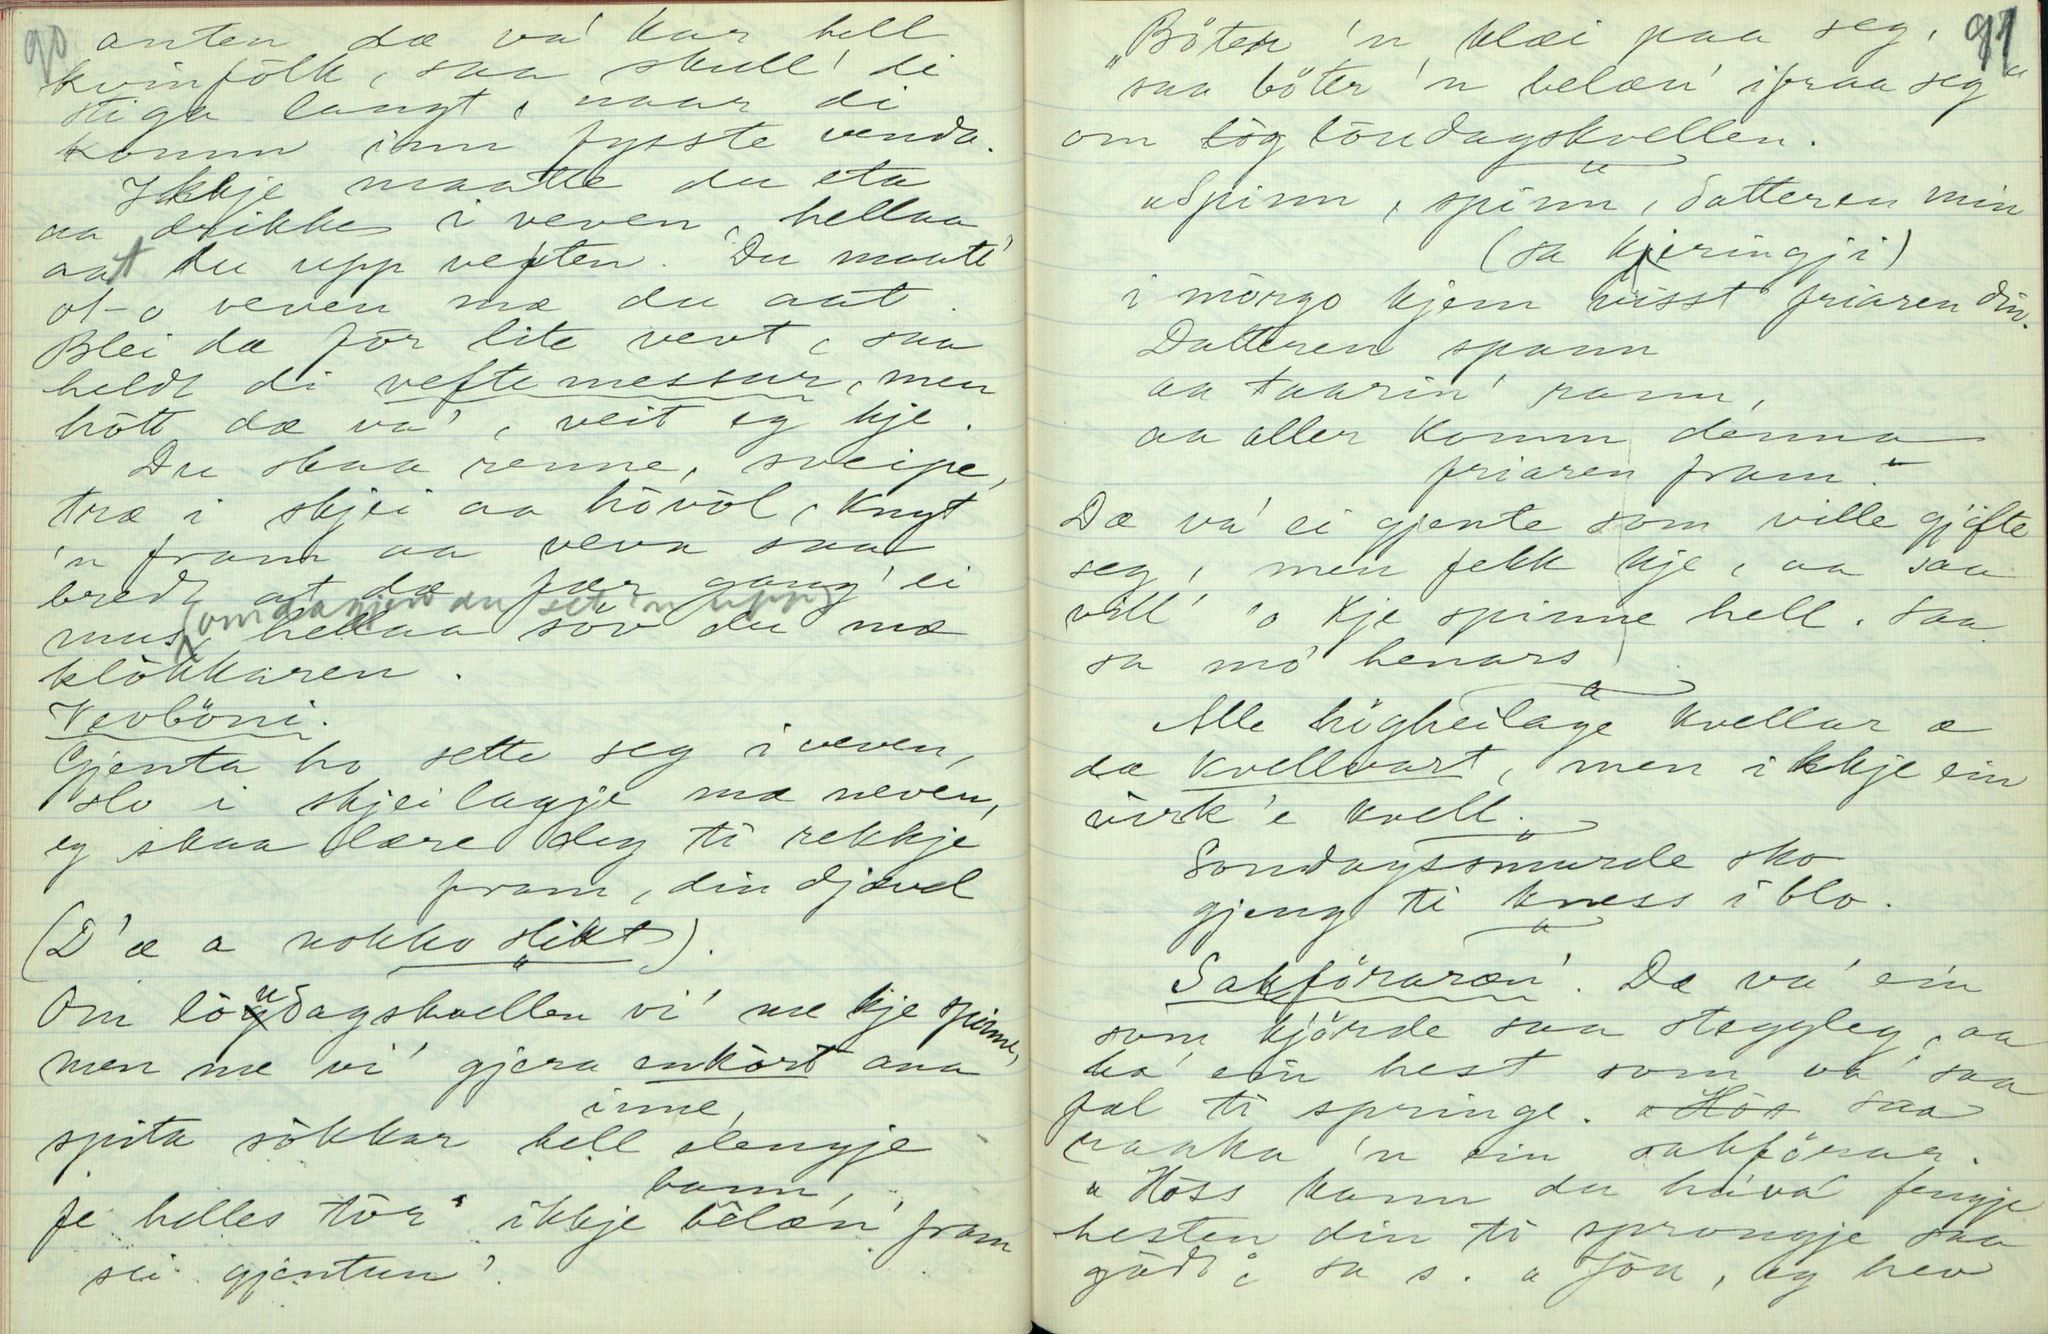 90
anten dæ va' kar hell
kvinfolk, saa skull' di
stiga langt, naar di
komm inn fysste venda.
Ikkje maatte du eta
aa drikke i veven, hellaa
aat du upp veften. Du maatt'
ot-o veven mæ du aat.
Blei dæ för lite vevt, saa
heldt di veftemessur, men
hött dæ va', veit eg kje.
Du skaa renne, sveipe,
træ i skjei aa hövöl, knyt
'n fram aa veva saa
bredt at dæ fær gang' ei
mus, (omdagjen du set 'n upp)
hellaa söv du mæ
klökkaren.
Vevböni.
Gjenta ho sette seg i veven,
slo i skjeilagje mæ neven,
eg skaa lære deg ti rekkje
fram, din djævel
(D'æ a nokko slikt).
Om löndagskvellen vi' me kje spinne,
men me vi' gjera enkört ana
inne,
spita sökkar hell slengje
bann,
fe helles tör' ikkje belæn' fram
sei gjentun'.
91
"Böter 'n klæi paa seg,
saa böter 'n belæn' ifraa seg"
om lög löndagskvellen.
"Spinn, spinn, datteren min
(sa kjeringji)
i mörgo kjem visst friaren din.
Datteren spann
aa taarin' rann,
aa aller komm denna
friaren fram."
Dæ va' ei gjente som ville gjifte
seg, men fekk kje, aa saa
vill' 'o kje spinne hell. Saa
sa mo' henars
Alle högheilage kvellar æ
dæ kvellvart, men ikkje ein
virk'e kvell.
Sondagssmurde sko
gjeng ti kness i blo.
Sakföraren'. Dæ va' ein
som kjörde saa steggleg, aa
ha' ein hest som va' saa
fal ti springe. "Hös saa
rakka 'n ein sakförar.
"Höss kann du ha'va' fengje
hesten din ti sprongje saa
gödt", sa s. "Jöu, eg hev